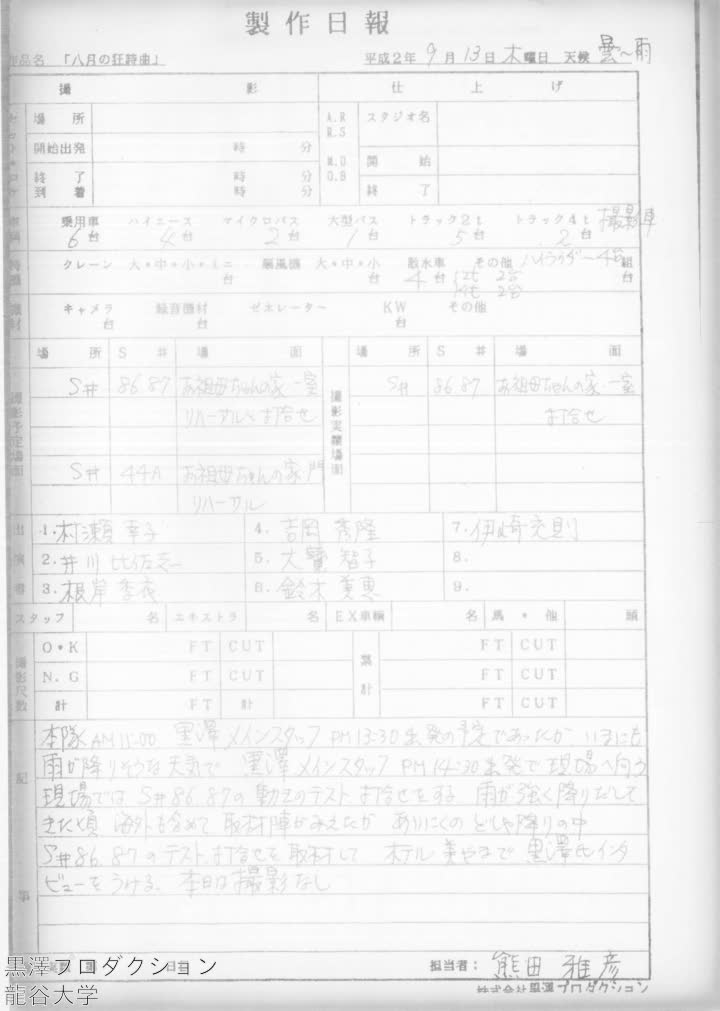 製作日報
作品名 「八月の狂詩曲」 平成2年 9月13日 木曜日 天候 曇〜雨
撮 影 仕 上 げ
場 所 A.R R.S スタジオ名
開始出発 時 分
M.D D.B 開 始
終了到着 時 分 時 分 終 了
乗用車 ハイエース マイクロバス 大型バス トラック2t トラック4t 撮影車
6台 4台 2台 1台 5台 2台
クレーン 大・中・小・ミニ 台 扇風機 大・中・小 台 散水車 4台 その他 ハイライダー 4台 組 台
12t 2台
14t 2台
キャメラ 台 録音機材 ゼネレーター KW 台 その他
場 所 S # 場 面 場 所 S # 場 面
撮影予定場面 撮影実績場面
S# 86.87 お祖母ちゃんの家・一室 S# 86.87 お祖母ちゃんの家・一室
リハーサル 打合せ 打合せ
S# 44A お祖母ちゃんの家 門
リハーサル
出演者
1.村瀬 幸子 4.吉岡 秀隆 7.伊崎充則
2.井川 比佐志 5.大寶 智子 8.
3.根岸 季衣 6.鈴木 美恵 9.
スタッフ 名 エキストラ 名 EX車輌 名 馬・他 頭
撮影尺数 O・K FT CUT 累計 FT CUT
N.G FT CUT FT CUT
計 FT 計 FT CUT
記事
本隊 AM11:00 黒澤 メインスタッフ PM13:30出発の予定であったが いまにも
雨が降りそうな天気で 黒澤 メインスタッフ PM14:30出発で 現場へ向う
現場では S#86.87の 動きのテスト 打合せをする 雨が強く降りだして
きた頃 海外も含めて 取材陣がみえたが あいにくの どしゃ降りの中
S#86.87のテスト、打合せを取材して ホテル 美やまで 黒澤氏インタ
ビューをうける. 本日は撮影なし
担当者: 熊田 雅彦
株式会社黒澤プロダクション
黒澤プロダクション
龍谷大学